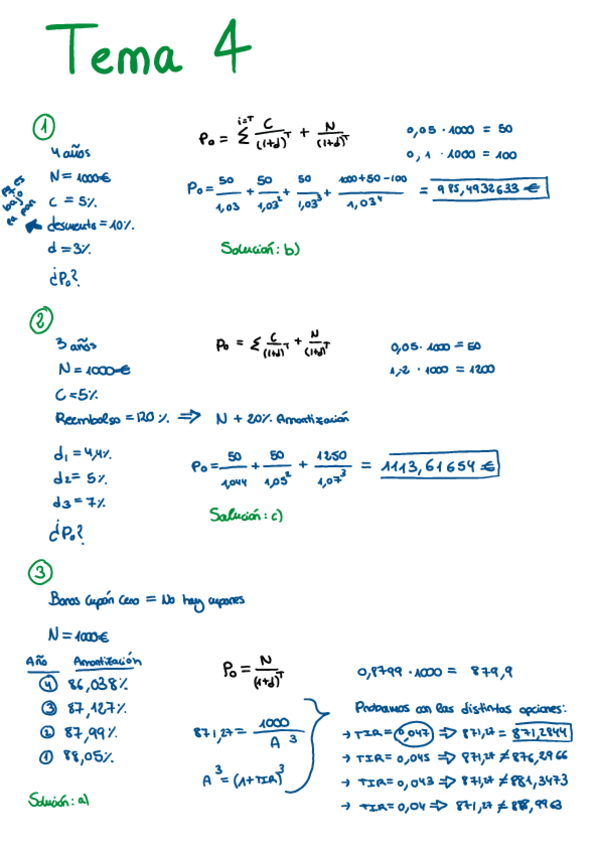 Tema 4
①
4 años
N = 1000€
C = 5%
descuento = 10%
d = 3%
¿P₀?
P₀ es bajo la par
P₀ = Σ^{i=T} C/(1+d)^T + N/(1+d)^T
0,05 · 1000 = 50
0,1 · 1000 = 100
P₀ = 50/1,03 + 50/1,03² + 50/1,03³ + 1000+50-100/1,03⁴ = 985,4932633 €
Solución: b)
②
3 años
N = 1000€
C = 5%
Reembolso = 120% ⇒ N + 20% Amortización
d₁ = 4,4%
d₂ = 5%
d₃ = 7%
¿P₀?
P₀ = Σ C/(1+d)^T + N/(1+d)^T
0,05 · 1000 = 50
1,2 · 1000 = 1200
P₀ = 50/1,044 + 50/1,05² + 1250/1,07³ = 1113,61654 €
Solución: c)
③
Bonos cupón cero = No hay cupones
N = 1000€
Año Amortización
④ 86,038%
③ 87,127%
② 87,99%
① 88,05%
Solución: a)
P₀ = N/(1+d)^T
0,8799 · 1000 = 879,9
871,27 = 1000/A³
A³ = (1+TIR)³
Probamos con las distintas opciones:
→ TIR = 0,047 ⇒ 871,27 = 871,2844
→ TIR = 0,045 ⇒ 871,27 ≠ 876,2966
→ TIR = 0,043 ⇒ 871,27 ≠ 881,3473
→ TIR = 0,04 ⇒ 871,27 ≠ 888,9963